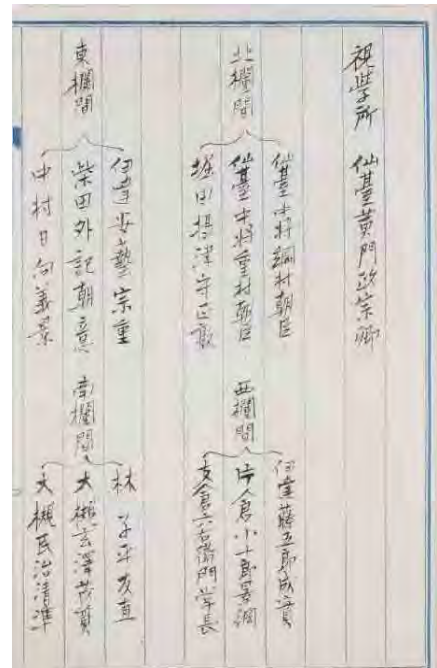 視学所 仙臺黄門政宗卿
北欄間
仙臺中将綱村朝臣
仙臺中将重村朝臣
堀田摂津守正敦
西欄間
伊達藤五郎成實
片倉小十郎景綱
支倉六右衛門常長
東欄間
伊達安藝宗重
柴田外記朝意
中村日向義景
南欄間
林子平友直
大槻玄澤茂質
大槻民治清準